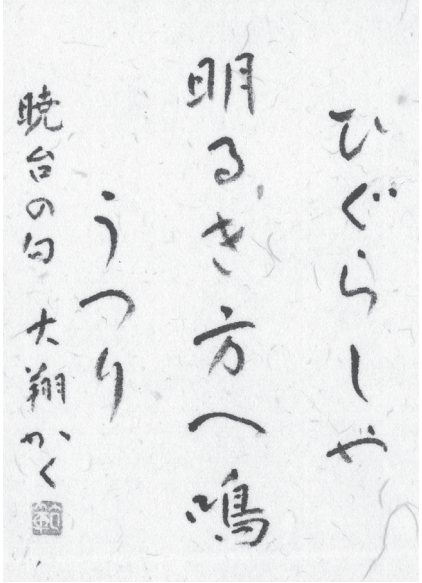 ひぐらしや
明るき方へ鳴
うつり
暁台の句 大翔かく